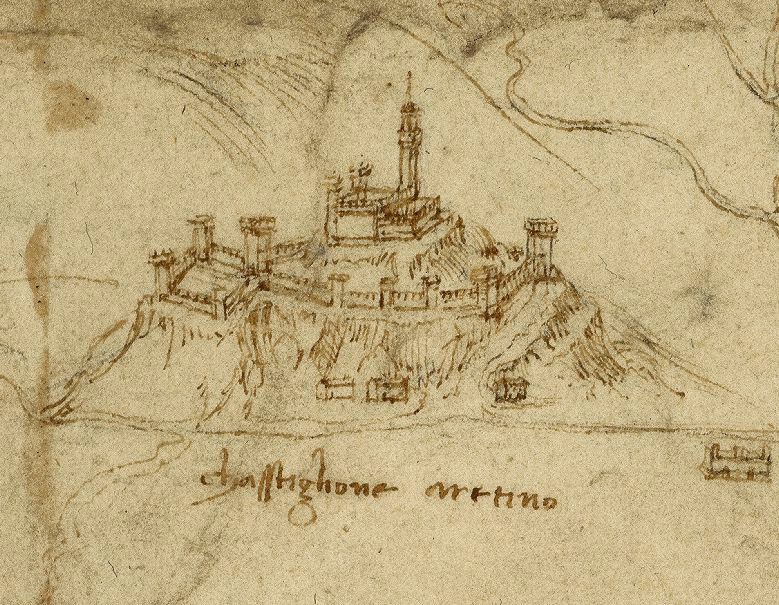 chasstighone aretino